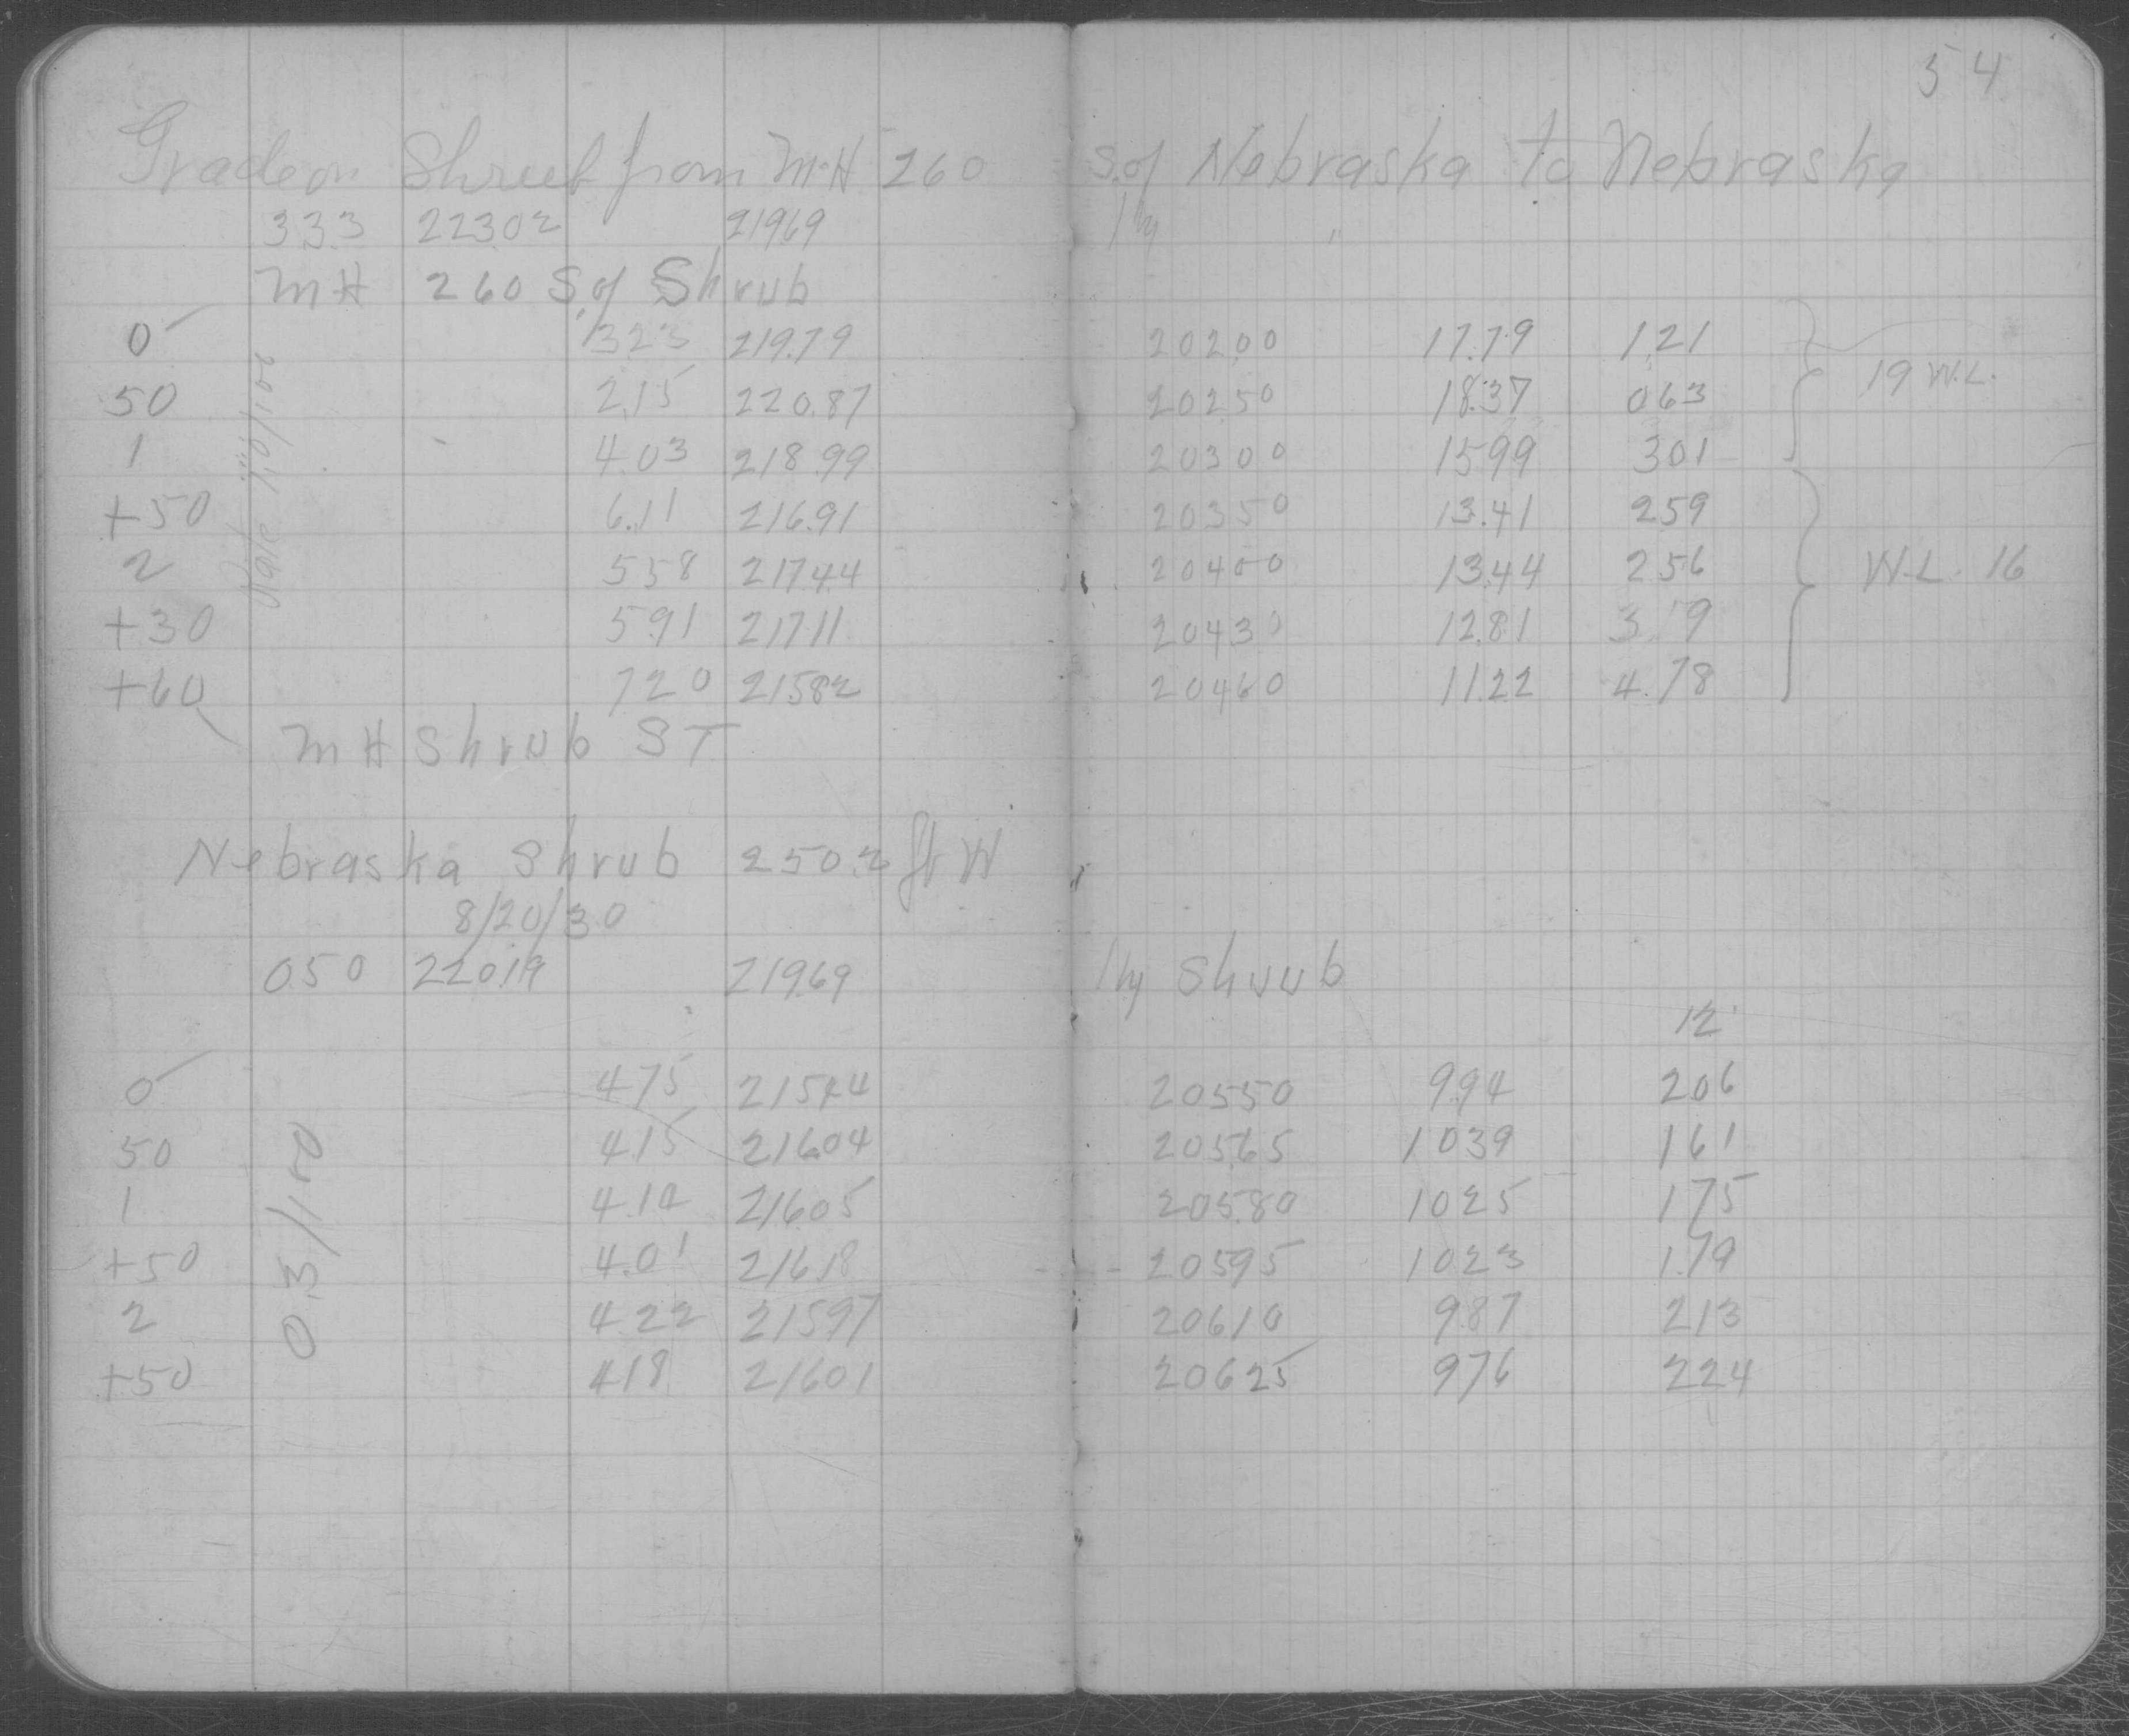 54
Grade on Shrub from MH 260 S. of Nebraska to Nebraska
333 22302 21969 Hy "
MH 260 S of Shrub
0 323 219.79 20200 17.79 1.21
50 2.15 220.87 20250 18.37 063 19 W.L.
1 4.03 218.99 20300 1599 301
+50 6.11 216.91 20350 13.41 259
2 558 21744 20400 13.44 256 W.L. 16
+30 591 21711 20430 12.81 3.19
+60 720 21582 20460 11.22 4.78
MH Shrub ST
Nebraska Shrub 250.2 ft W
8/20/30
050 220.19 219.69 Hy Shrub
12
0 475 21544 20550 9.94 206
50 415 21604 20565 1039 161
1 414 21605 20580 1025 175
+50 4.01 21618 20595 1023 1.79
2 422 21597 20610 987 213
+50 418 21601 20625 976 224
0.3/100